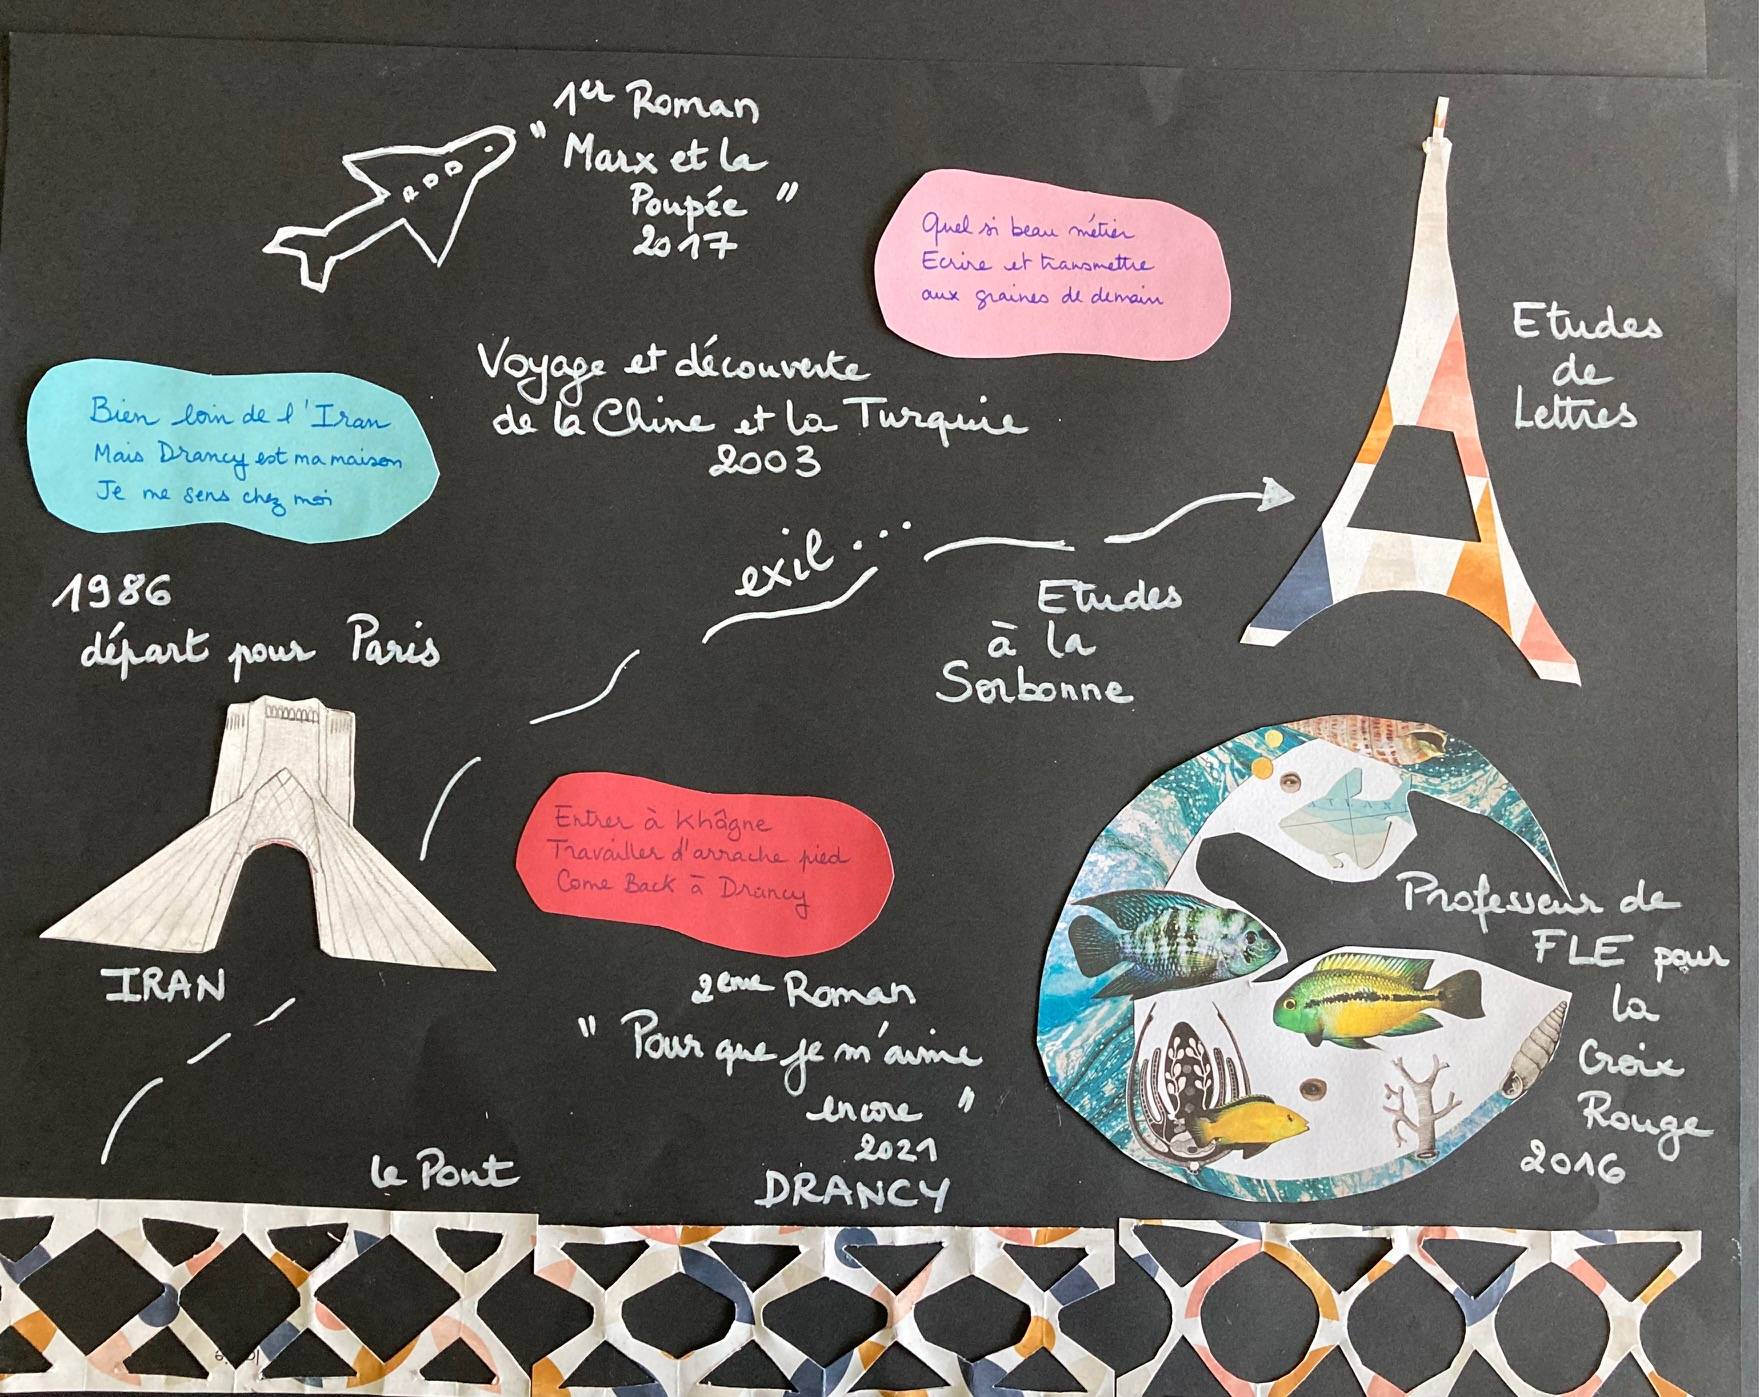 1er Roman
" Marx et la
Poupée "
2017
Quel si beau métier
Ecrire et transmettre
aux graines de demain
Etudes
de
Lettres
Voyage et découverte
de la Chine et la Turquie
2003
Bien loin de l'Iran
Mais Drancy est ma maison
Je me sens chez moi
exil...
1986
départ pour Paris
Etudes
à la
Sorbonne
Entrer à Khâgne
Travailler d'arrache pied
Come Back à Drancy
IRAN
Professeur de
FLE pour
la
Croix
Rouge
2016
2eme Roman
" Pour que je m'aime
encore "
2021
le Pont
DRANCY